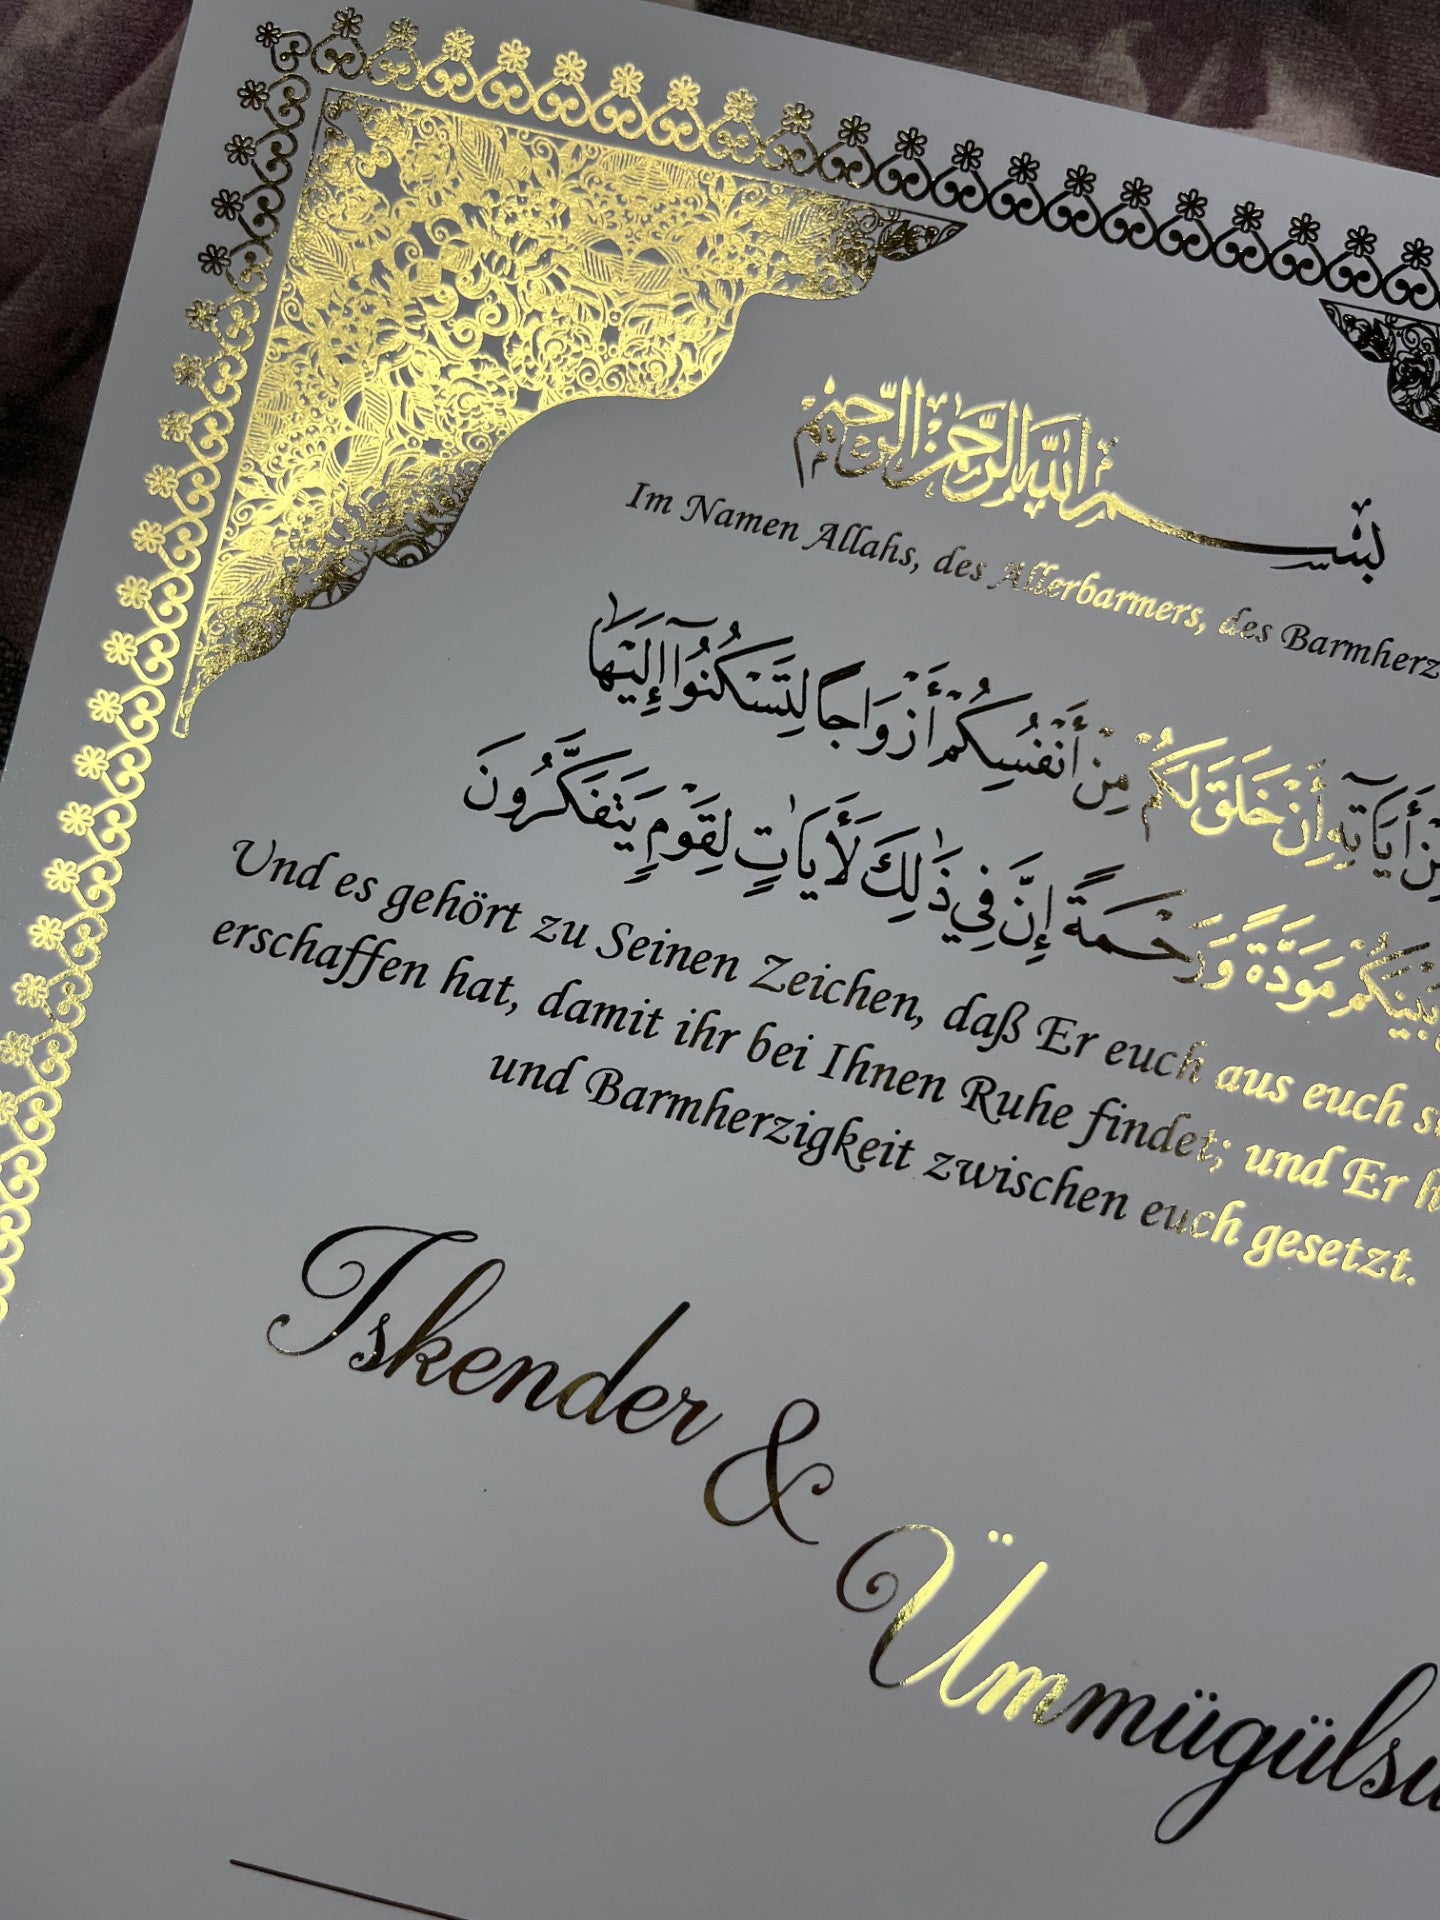 بِسْمِ اللَّهِ الرَّحْمَٰنِ الرَّحِيمِ
Im Namen Allahs, des Allerbarmers, des
أَيَاتِهِ أَنْ خَلَقَ لَكُمْ مِنْ أَنْفُسِكُمْ أَزْوَاجاً لِتَسْكُنُوا إِلَيْهَا
مَوَدَّةً وَرَحْمَةً إِنَّ فِي ذَٰلِكَ لَأَيَاتٍ لِقَوْمٍ يَتَفَكَّرُونَ
Und es gehört zu Seinen Zeichen, daß Er euch aus euch
erschaffen hat, damit ihr bei Ihnen Ruhe findet; und Er
und Barmherzigkeit zwischen euch gesetzt.
Iskender &